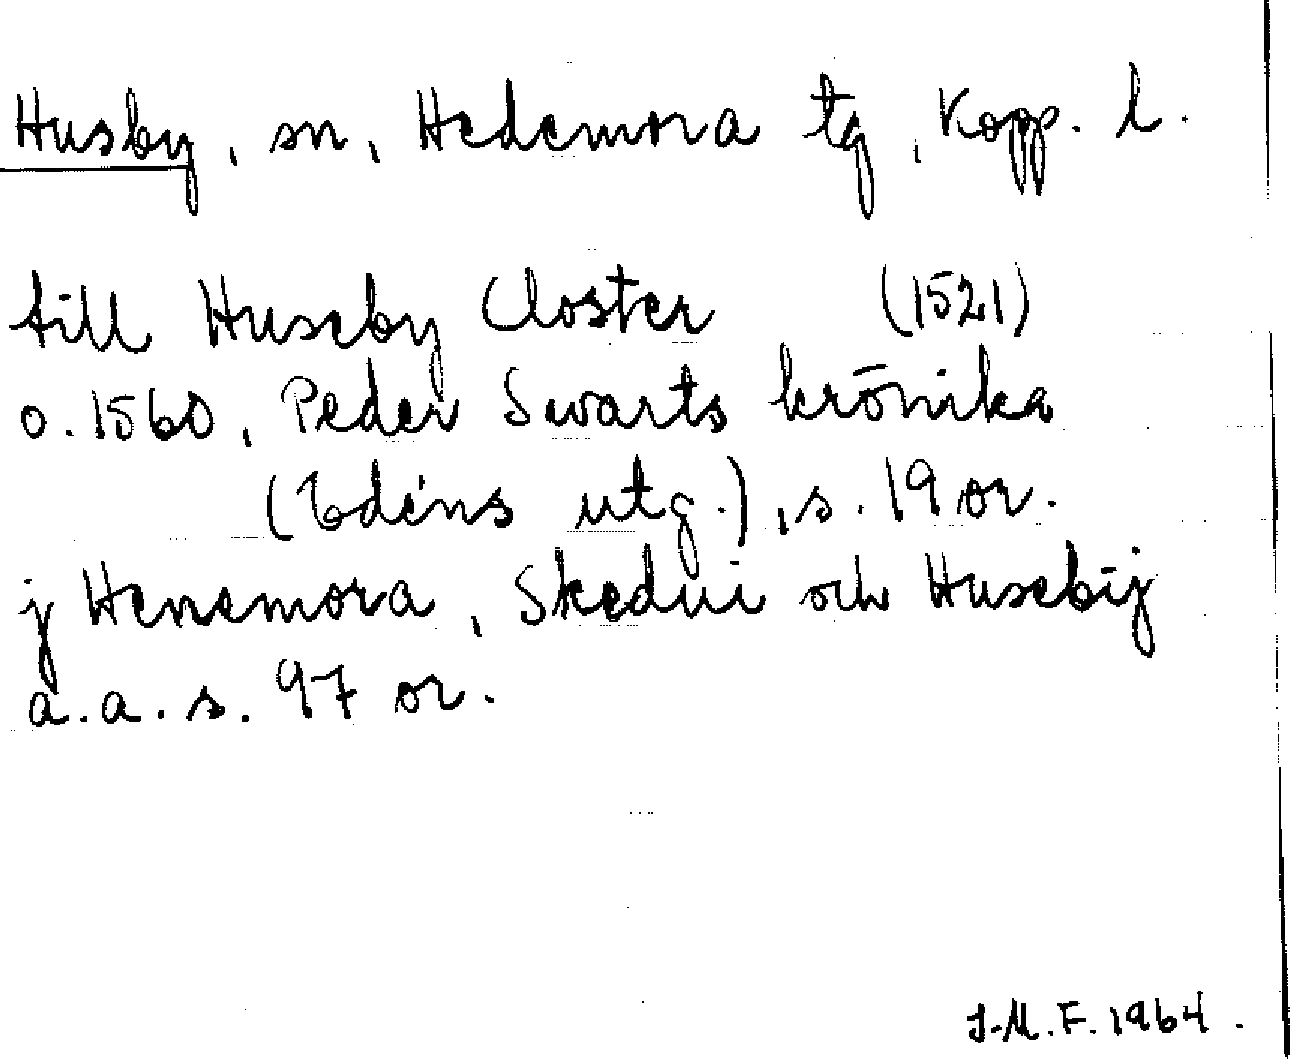 Husby, sn, Hedemora tg, Kopp. l.
till Huseby Closter (1521)
o. 1560, Peder Swarts krönika
(Edéns utg.), s. 19 or.
j Henemora, Skedui och Husebij
a. a. s. 97 or.
J.M.F. 1964.